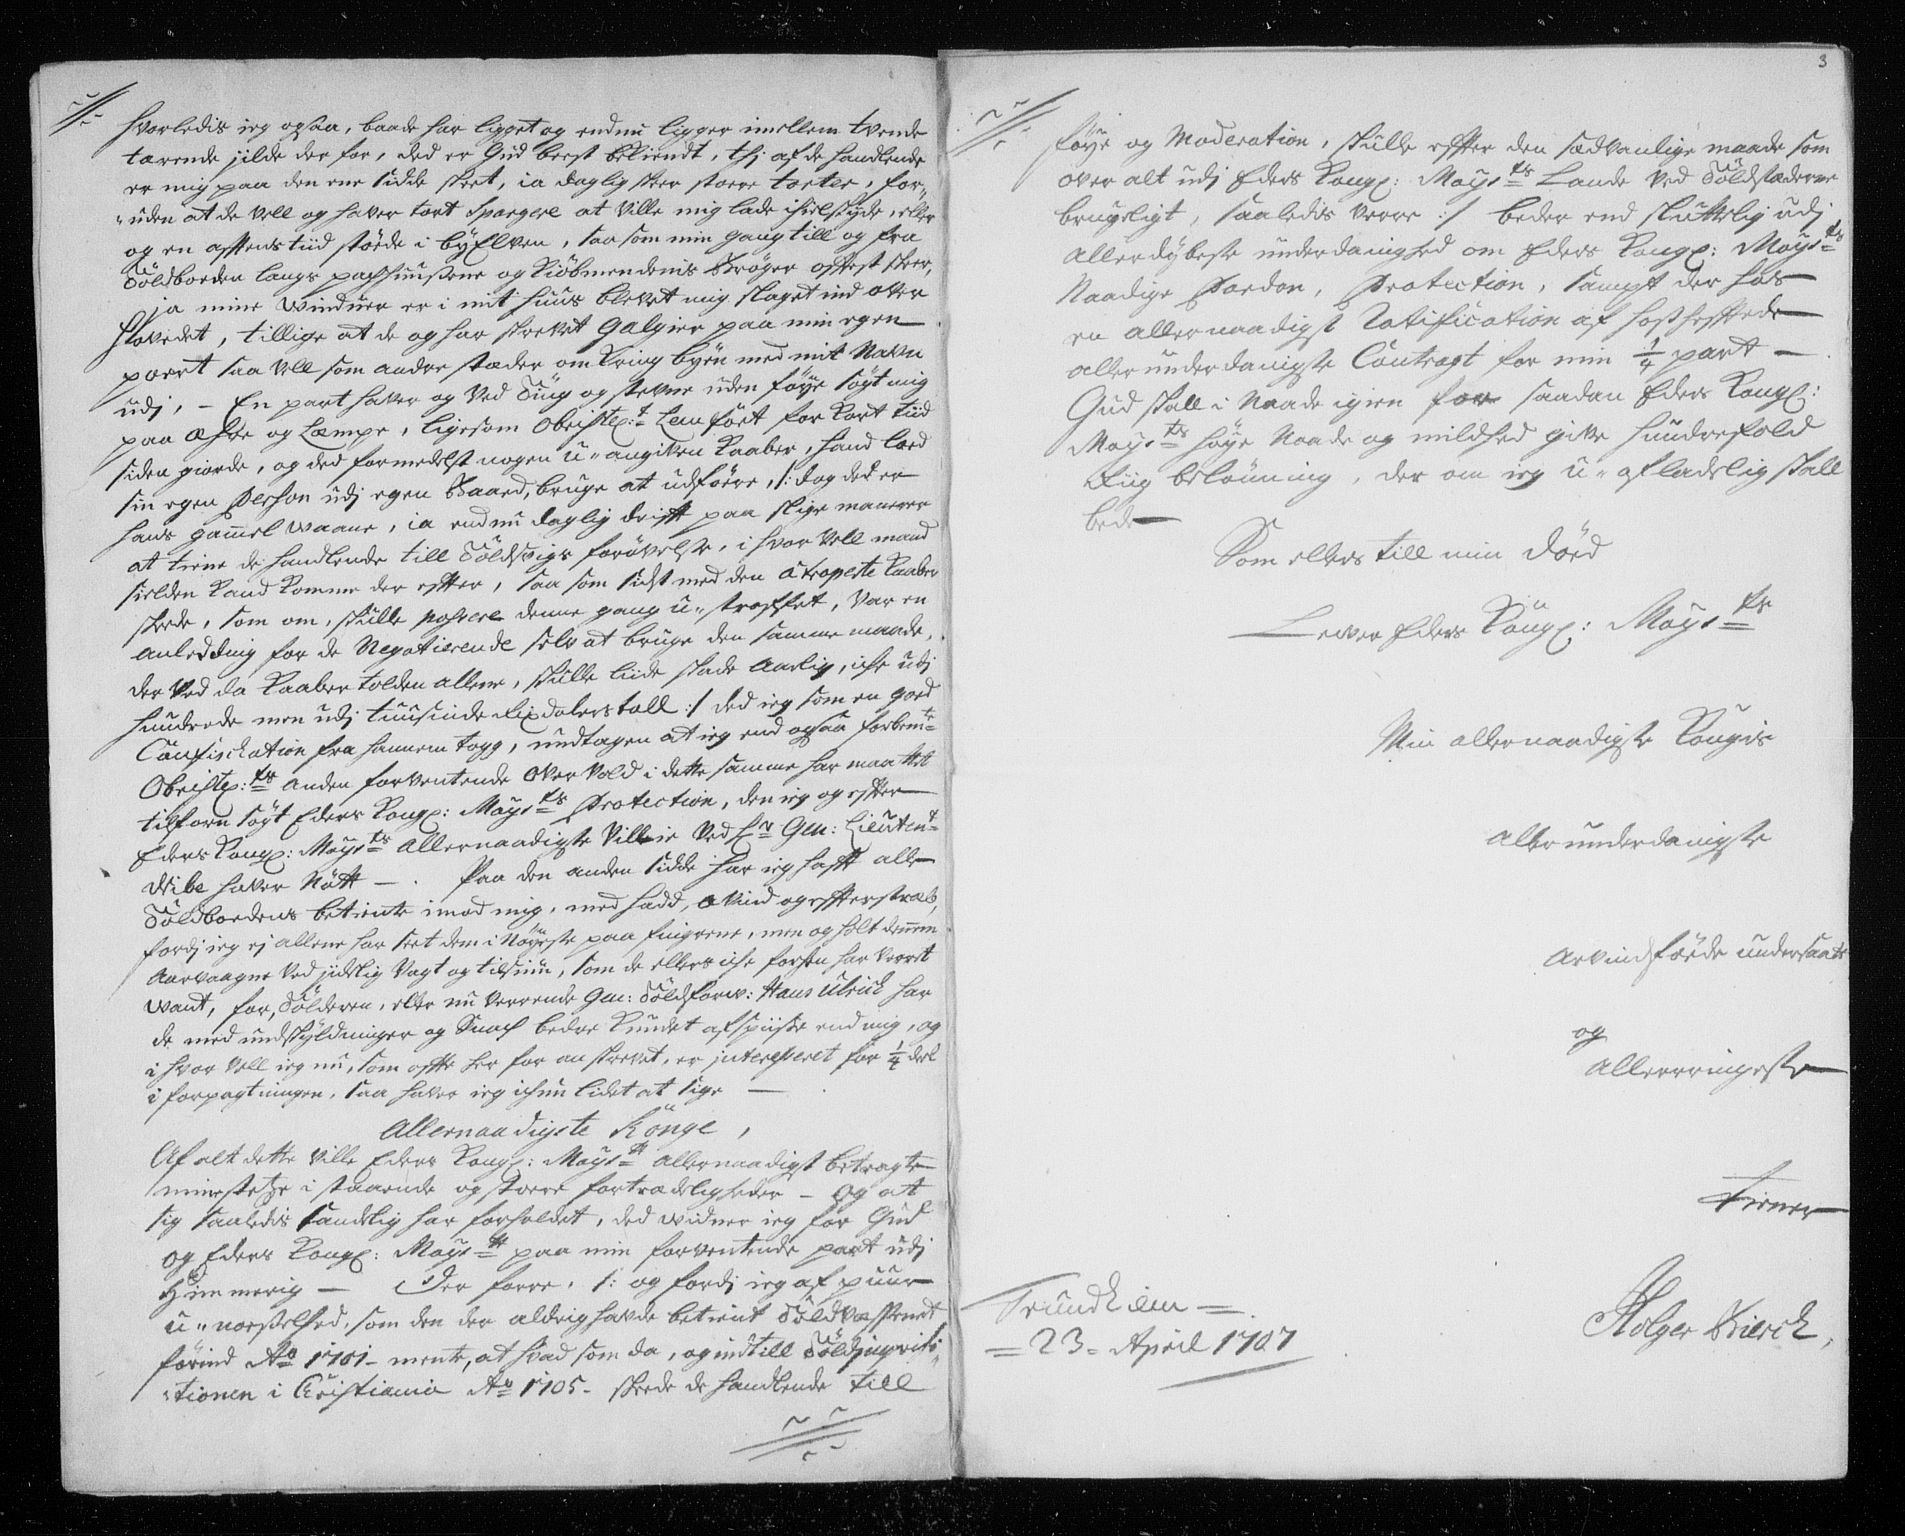 hvorledis jeg ogsaa, baade har ligget og endnu ligger imellem tvende
tærende jilde der for, ded er Gud best bekiendt, thj af de handlende
er mig paa den ene sidde skeet, ia daglig skeer stoere torter, for„
„uden at de vell og haver tort Spargere at ville mig lade ihielskyde, eller
og en afftens tiid støde i byElven, saa som min gang till og fra
Tóldboeden langs pachhuußene og Kiøbmendenis Brøger offtest skeer,
ja mine Winduer er i mit huus blevet mig slaget ind over
Hovedet, tillige at de og har skrevet Galgier paa min egen
poert saa vell som andre stæder omkring byen med mit Navn
udj, – En part haver og ved Ting og stevne uden føye søgt mig
paa Æhre og Læmpe, ligesom Obristl:t Lemfört for kort tiid
siden giorde, og ded formedelst nogen u-angiven Kaaber, hand lod
sin egen Person udj egen Baad, bruge at udføere, /: dog det er
hans gammel Waane, ia endnu daglig drifft paa slige manerer
at tiene de handlende till Toldsvigs forøvelse, i hvor vell mand
sielden kand komme der efter, saa som sidst med den atraperte Kaaber
skeede, som om, skulle pahsere denne gang u-straffet, var en
anledding for de Negotierende selv at bruge den samme maade,
der ved da Kaaber tolden allene, skulle liide skade Aarlig, iche udj
hundrede men udj tuusinde Rixdalers tall :/ ded ieg som en goed
Confischation fra hannem togg, undtagen at ieg end ogsaa forbemte
Obristl:ts anden forventende overvold i dette samme har maattet
tilforn søgt Eders Kongl: Mayts Protection, den ieg og effter
Eders Kongl: Mayts Allernaadigste Villie ved Hr Gen: Lieutent
Wibe haver Nøtt – . Paa den anden sidde har ieg hafft alle
Tóldboedens betiente imod mig, med had, avind og effterstræb,
fordj ieg ej allene har seet dem i Nøyeste paa fingrene, men og holt dennem
Aarvaagne ved jidelig Vagt og tilsiun, som de ellers iche forhen har verret
vant, for, Tólderen, eller nu verrende Gen: Tóldforv: Hans Ulrich har
de med undskyldninger og Snach bedre kundet afspiiße end mig, og
i hvor vell ieg nu, som offte her for an skrevet, er jnterehseret for 1/4 deel
i forpagtningen, saa haver ieg ichun lidet at sige –
Allernaadigste Könge,
Af alt dette ville Eders Kongl: Mayst allernaadigst betragte
mine stetze i staaende og stoere fortrædeligheder – Og at
sig saaledis sandelig har forholdet, ded widner ieg for Gud
og Eders Kongl: Mayst paa min forventende part udj
Himmerig – Der forre, /: og fordj ieg af puur
u-verßelhed, som den der aldrig havde betient Tóldvæsenet
førind Ao 1701 – mente, at hvad som da, og indtill Tóldjnqvisi„
„tionen i Christiania Ao 1705 – skeede de handlende till
3
føye og Moderation, skulle effter den sædvanlige maade som
over alt udj Eders Kongl: Mayts Lande ved Tóldstæderne
brugeligt, saaledis verre :/ beder end sluttelig udj
allerdybeste underdanighed om Eders Kongl: Mayts
Naadige Pardon, Protection, sampt der hos
en allernaadigst Ratification af hoßhefftede
allerunderdanigste Contragt for min 1/4 part –
Gud skall i Naade igien for saadan Eders Kongl:
Mayts høye Naade og mildhed give hundrefold
Riig belønning, der om ieg u-afladelig skall
bede –
Som ellers till min død
Lever Eders Kongl: Mayts
Min allernaadigste Kongis
Allerunderdanigste
Arvindføde undersaatt
og
Alleringeste
Tiener
Trundhiem –
– 23 – April 1707
Holger Bierch,